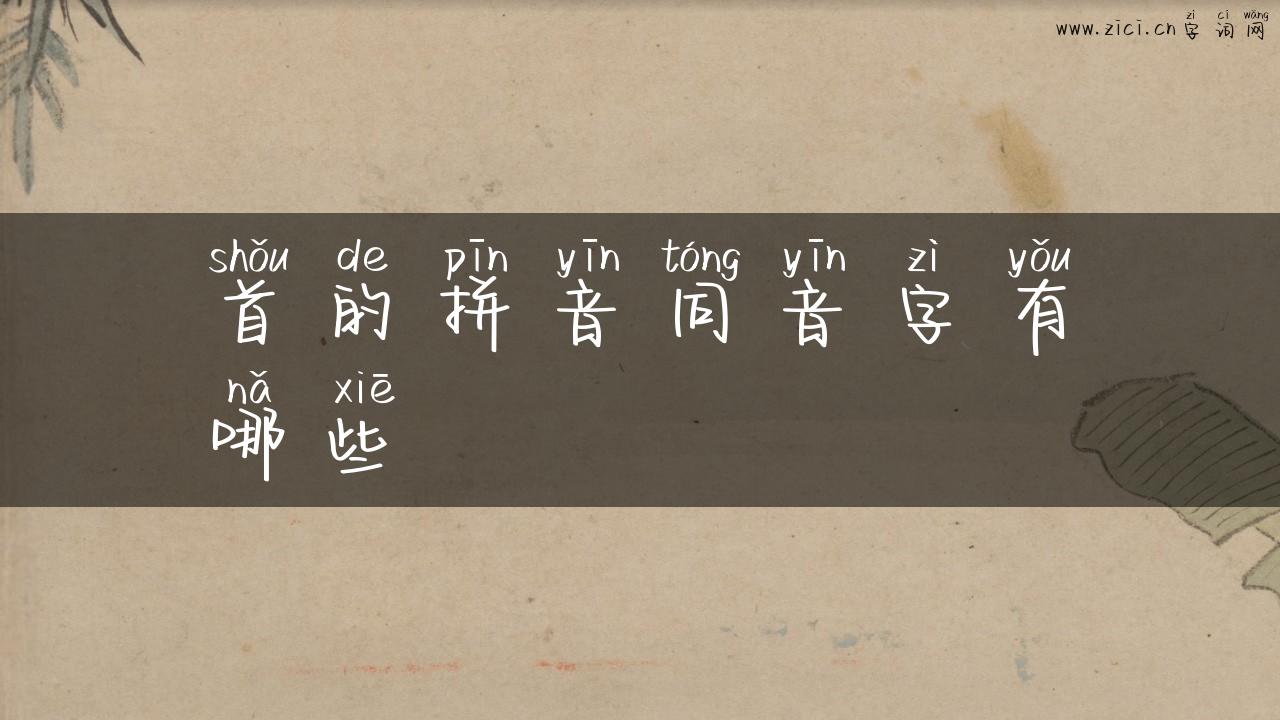 zì cí wǎng
www.zici.cn 字 词 网
shǒu de pīn yīn tóng yīn zì yǒu
首 的 拼 音 同 音 字 有
nǎ xiē
哪 些